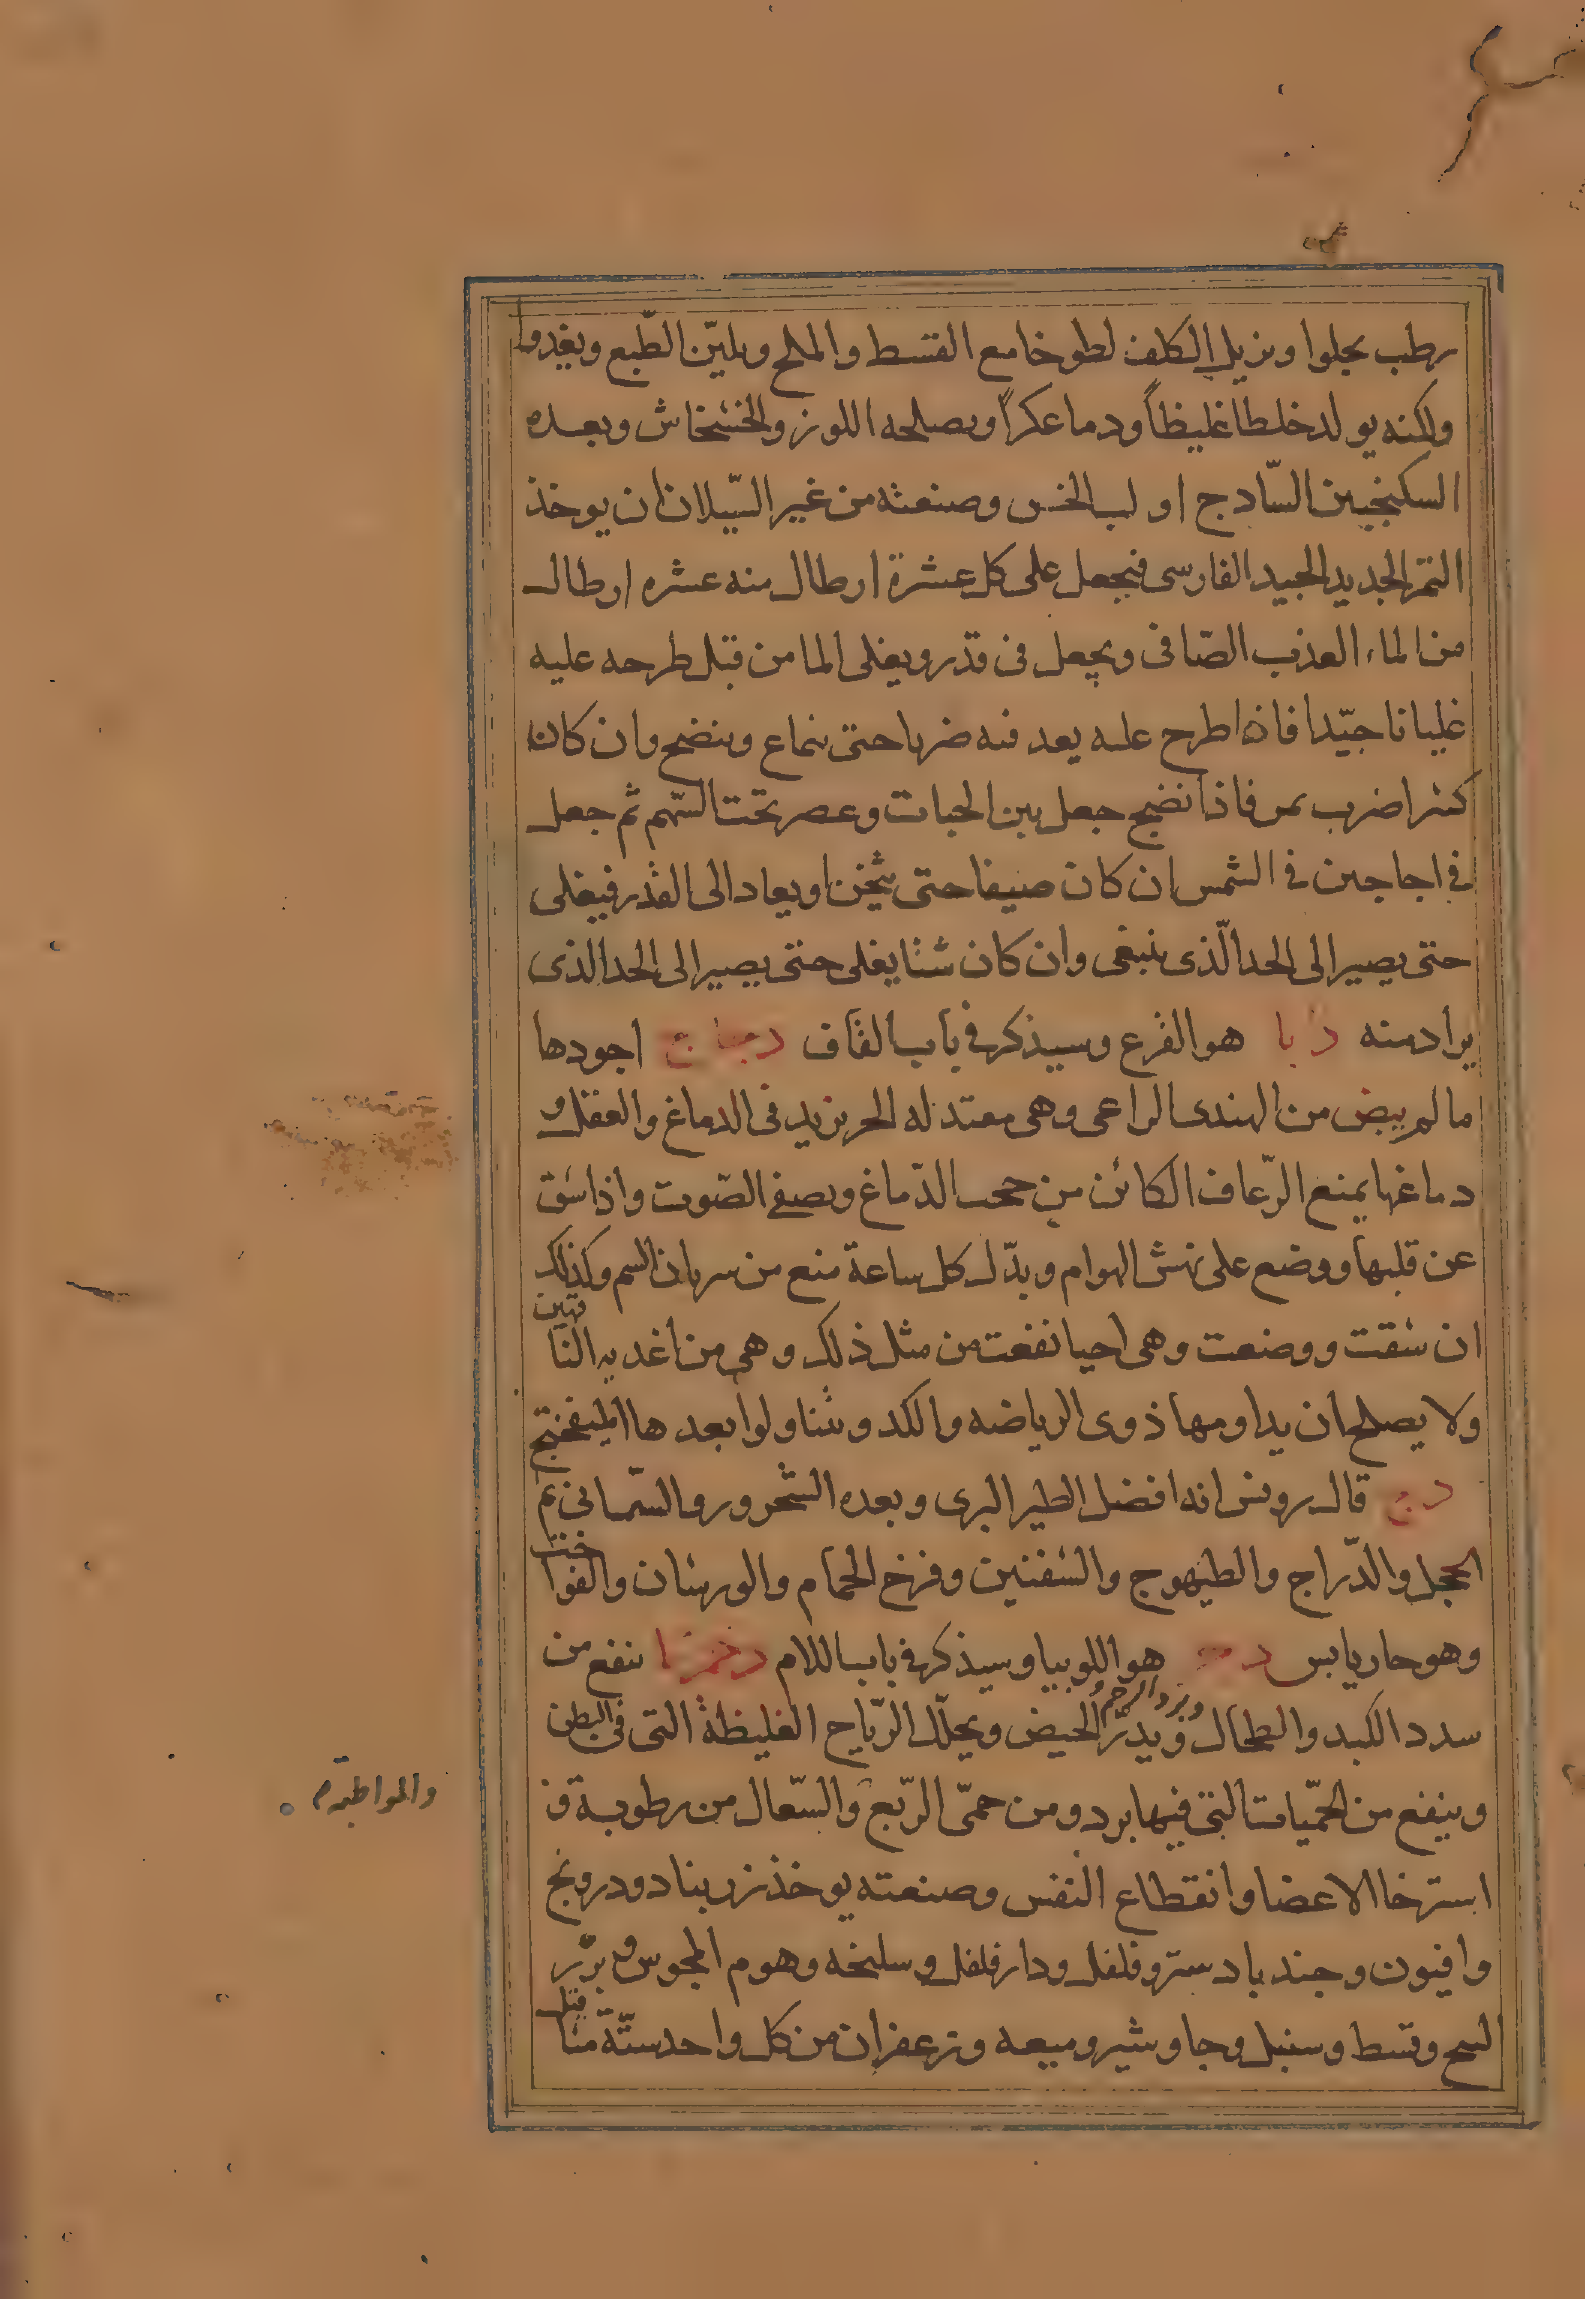 رطب يجلوا ويزيل الكلف لطوخا مع القسط والملح ويليّن الطّبع ويغدوا
ولكنه يولد خلطا غليظاً ودما عكراً ويصلحه اللوز والخشخاش وبعده
السكنجبين السّادج او لب الخس وصنعته من غير السّيلان ان يوخذ
التمر الجديد الجيد الفارسى فيجعل على كل عشرة ارطال منه عشره ارطال
من الماء العذب الصّافى ويجعل فى قدر ويغلى الما من قبل طرحه عليه
غليانا جيّدا فاذا طرح عليه بعد فيه ضربا حتى ينماع وينضج وان كان
كثيرا ضرب بمر فاذا نضج جعل بين الحبات وعصر تحت السّهم ثم جعل
فى اجاجين فى الشمس ان كان صيفا حتى يثخن او يعاد الى القدر فيغلى
حتى يصير الى الحد الّذى ينبغى وان كان شتا يغلى حتى يصير الى الحد الذى
يراد منه دبا هو القرع وسيذكر فى باب القاف دجاج اجودها
ما لم يبض من الهندى الراعى وهى معتدله الحر يزيد فى الدماغ والعقل و
دماغها يمنع الرّعاف الكائن من حجب الدّماغ ويصفى الصّوت واذا شق
عن قلبها ووضع على نهش الهوام وبدّل كل ساعة منع من سريان السم وكذلك
ان شقت ووضعت وهى احيا نفعت من مثل ذلك وهى من اغديه النا
قهين
ولا يصلح ان يداومها ذوى الرياضه والكد ويتناولوا بعدها الميفختج
دج قال روفس انه افضل الطير البرى وبعده الشحرور والسّمانى ثم
الحجل والدّراج والطيهوج والشفنين وفرخ الحمام والورشان والفوا
خت
وهو حار يابس هو اللوبيا وسيذكر فى باب اللام دحمرثا ينفع من
وبرد الرحم و
سدد الكبد والطحال ويدرّ الحيض ويحلّل الرّياح الغليظة التى فى البطن
وينفع من الحمّيات التى فيها برد ومن حمّى الرّبع والسّعال من رطوبة و
استرخا الاعضا وانقطاع النفس وصنعته يوخذ زرنباد ودرونج
وافيون وجندبادستر وفلفل ودارفلفل وسليخه وهوم المجوس وبزر
البنج وقسط وسنبل وجاوشير وميعه وزعفران من كل واحد ستّة مثا
قيل